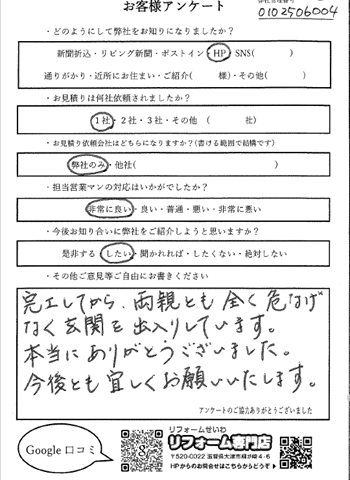 お客様アンケート
0102506004
・どのようにして弊社をお知りになりましたか?
新聞折込・リビング新聞・ポストイン・HP・SNS( )
通りがかり・近所にお住まい・ご紹介( 様)・その他( )
・お見積りは何社依頼されましたか?
1社・2社・3社・その他 ( 社)
・お見積り依頼会社はどちらになりますか?(書ける範囲で結構です)
弊社のみ・他社( )
・担当営業マンの対応はいかがでしたか?
非常に良い・良い・普通・悪い・非常に悪い
・今後お知り合いに弊社をご紹介しようと思いますか?
是非する・したい・聞かれれば・したくない・絶対しない
・その他ご意見等ご自由にお書きください
完工してから、両親とも全く危なげ
なく玄関を出入りしています。
本当にありがとうございました。
今後とも宜しくお願いいたします。
アンケートのご協力ありがとうございました
Google口コミ
リフォームせいわ
リフォーム専門店
〒520-0022 滋賀県大津市柳が崎4-6
HPからのお問合せはこちらからどうぞ